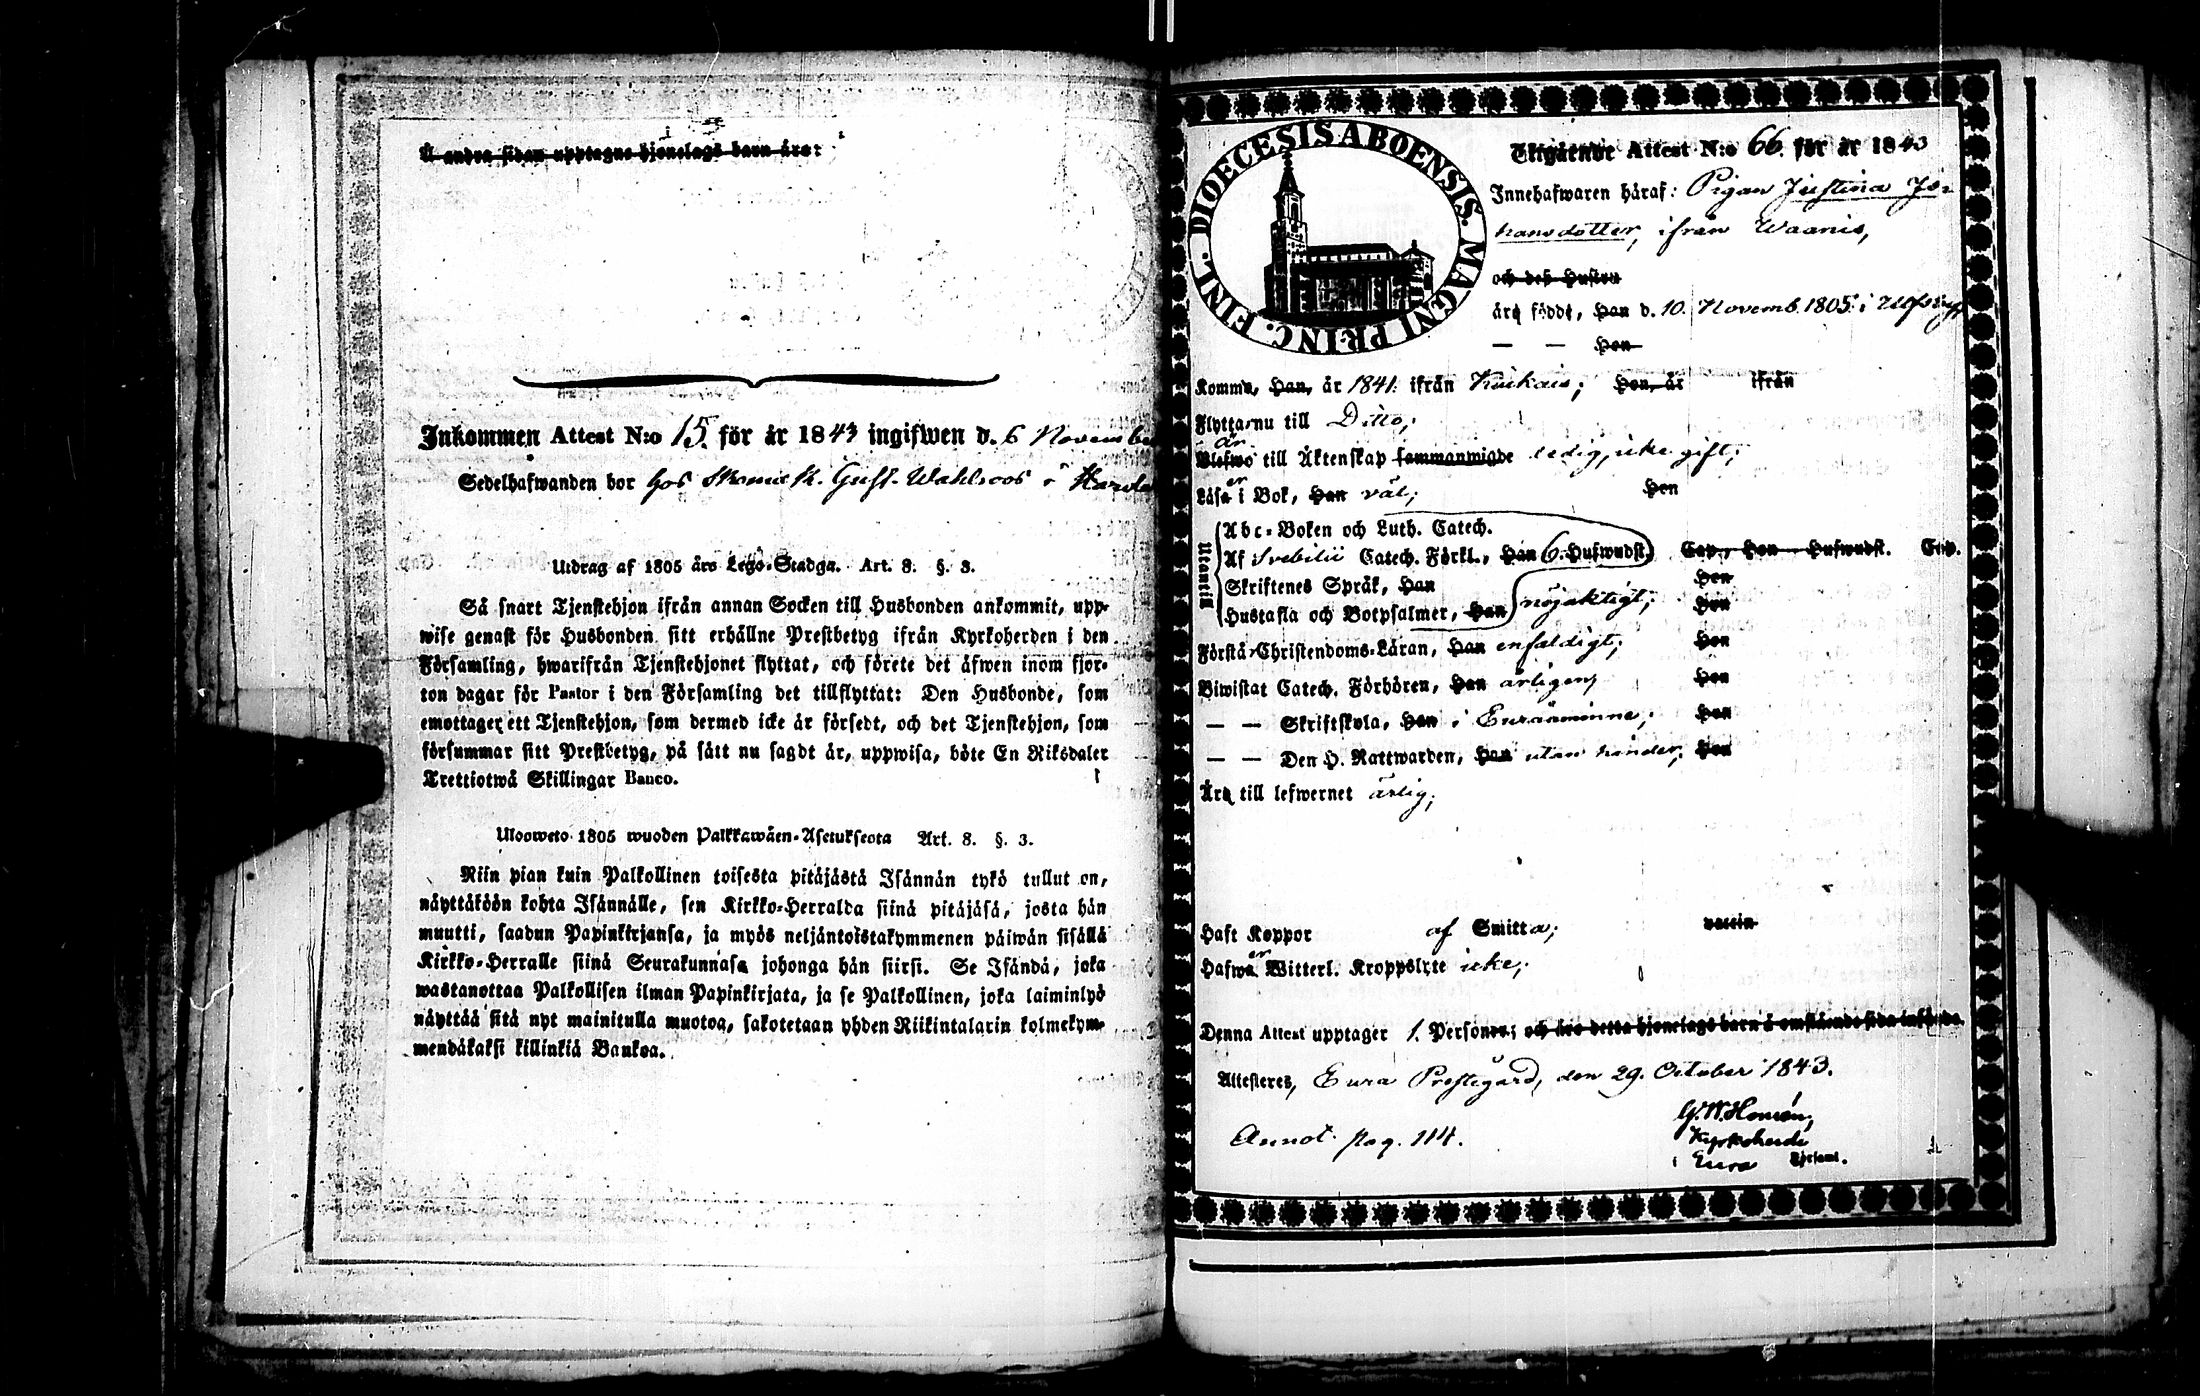 Å andra sidan upptagne hjonelags barn äro:
Inkommen Attest N:o 15. för år 1843 ingifwen d. 6 November
Sedelhafwanden bor hos Skomak. Gust. Wahlroos i
Utdrag af 1805 års Lego-Stadga. Art. 8. §. 3.
Så snart Tjenstehjon ifrån annan Socken till Husbonden ankommit, upp-
wise genast för Husbonden sitt erhållne Prestbetyg ifrån Kyrkoherden i den
Församling, hwarifrån Tjenstehjonet flyttat, och förete det äfwen inom fjor-
ton dagar för Pastor i den Församling det tillflyttat: Den Husbonde, som
emottager ett Tjenstehjon, som dermed icke är försedt, och det Tjenstehjon, som
försummar sitt Prestbetyg, på sätt nu sagdt är, uppwisa, böte En Riksdaler
Trettiotwå Skillingar Banco.
Ulosweto 1805 wuoden Palkkawäen-Asetuksesta Art. 8. §. 3.
Niin pian kuin Palkollinen toisesta pitäjästä Isännän tykö tullut on,
näyttäköön kohta Isännälle, sen Kirkko-Herralda siinä pitäjäsä, josta hän
muutti, saadun Papinkirjansa, ja myös neljäntoistakymmenen päiwän sisällä
Kirkko-Herralle siinä Seurakunnasa johonga hän siirsi. Se Isändä, joka
wastanottaa Palkollisen ilman Papinkirjata, ja se Palkollinen, joka laiminlyö
näyttää sitä nyt mainitulla muotoa, sakotetaan yhden Riikintalarin kolmekym-
mendäkaksi killinkiä Bankoa.
DIOECESIS ABOENSIS. MAGNI PRINC. FINL.
Utgående Attest N:o 66. för år 1843
Innehafwaren häraf: Pigan Justina Jo-
hansdotter, ifrån Waanis,
och deß Hustru
äro född, Han d. 10. Novemb. 1805. i
— — Hon
Komma, Han, år 1841. ifrån Kiukais; Hon, år ifrån
Flytta nu till Ditto;
är
Blefwo till Äktenskap sammanwigde ledig, icke gift;
er
Läsa i Bok, Han väl; Hon
Utantill
Abc-Boken och Luth. Catech.
Af Svebilii Catech. Förkl., Han 6. Hufwudst. Cap., Hon Hufwudst. Cap.
Skriftenes Språk, Han Hon
Hustafla och Botpsalmer, Han nöjaktigt; Hon
Förstå Christendoms-Läran, Han enfaldigt; Hon
Biwistat Catech. Förhören, Han årligen; Hon
— — Skriftskola, Han i Euraåminne; Hon
— — Den H. Nattwarden, Han utan hinder; Hon
Äro till lefwernet ärlig;
Haft Koppor af Smitta; vaccin
er
Hafwa Witterl. Kroppslyte icke;
Denna Attest upptager 1. Personer; och äro detta hjonelags barn å omstående sida införda.
Attesteres, Eura Prestegård, den 29. October 1843.
G. W. Homén,
Kyrkoherde
i Eura Församl.
Annot. pag. 114.